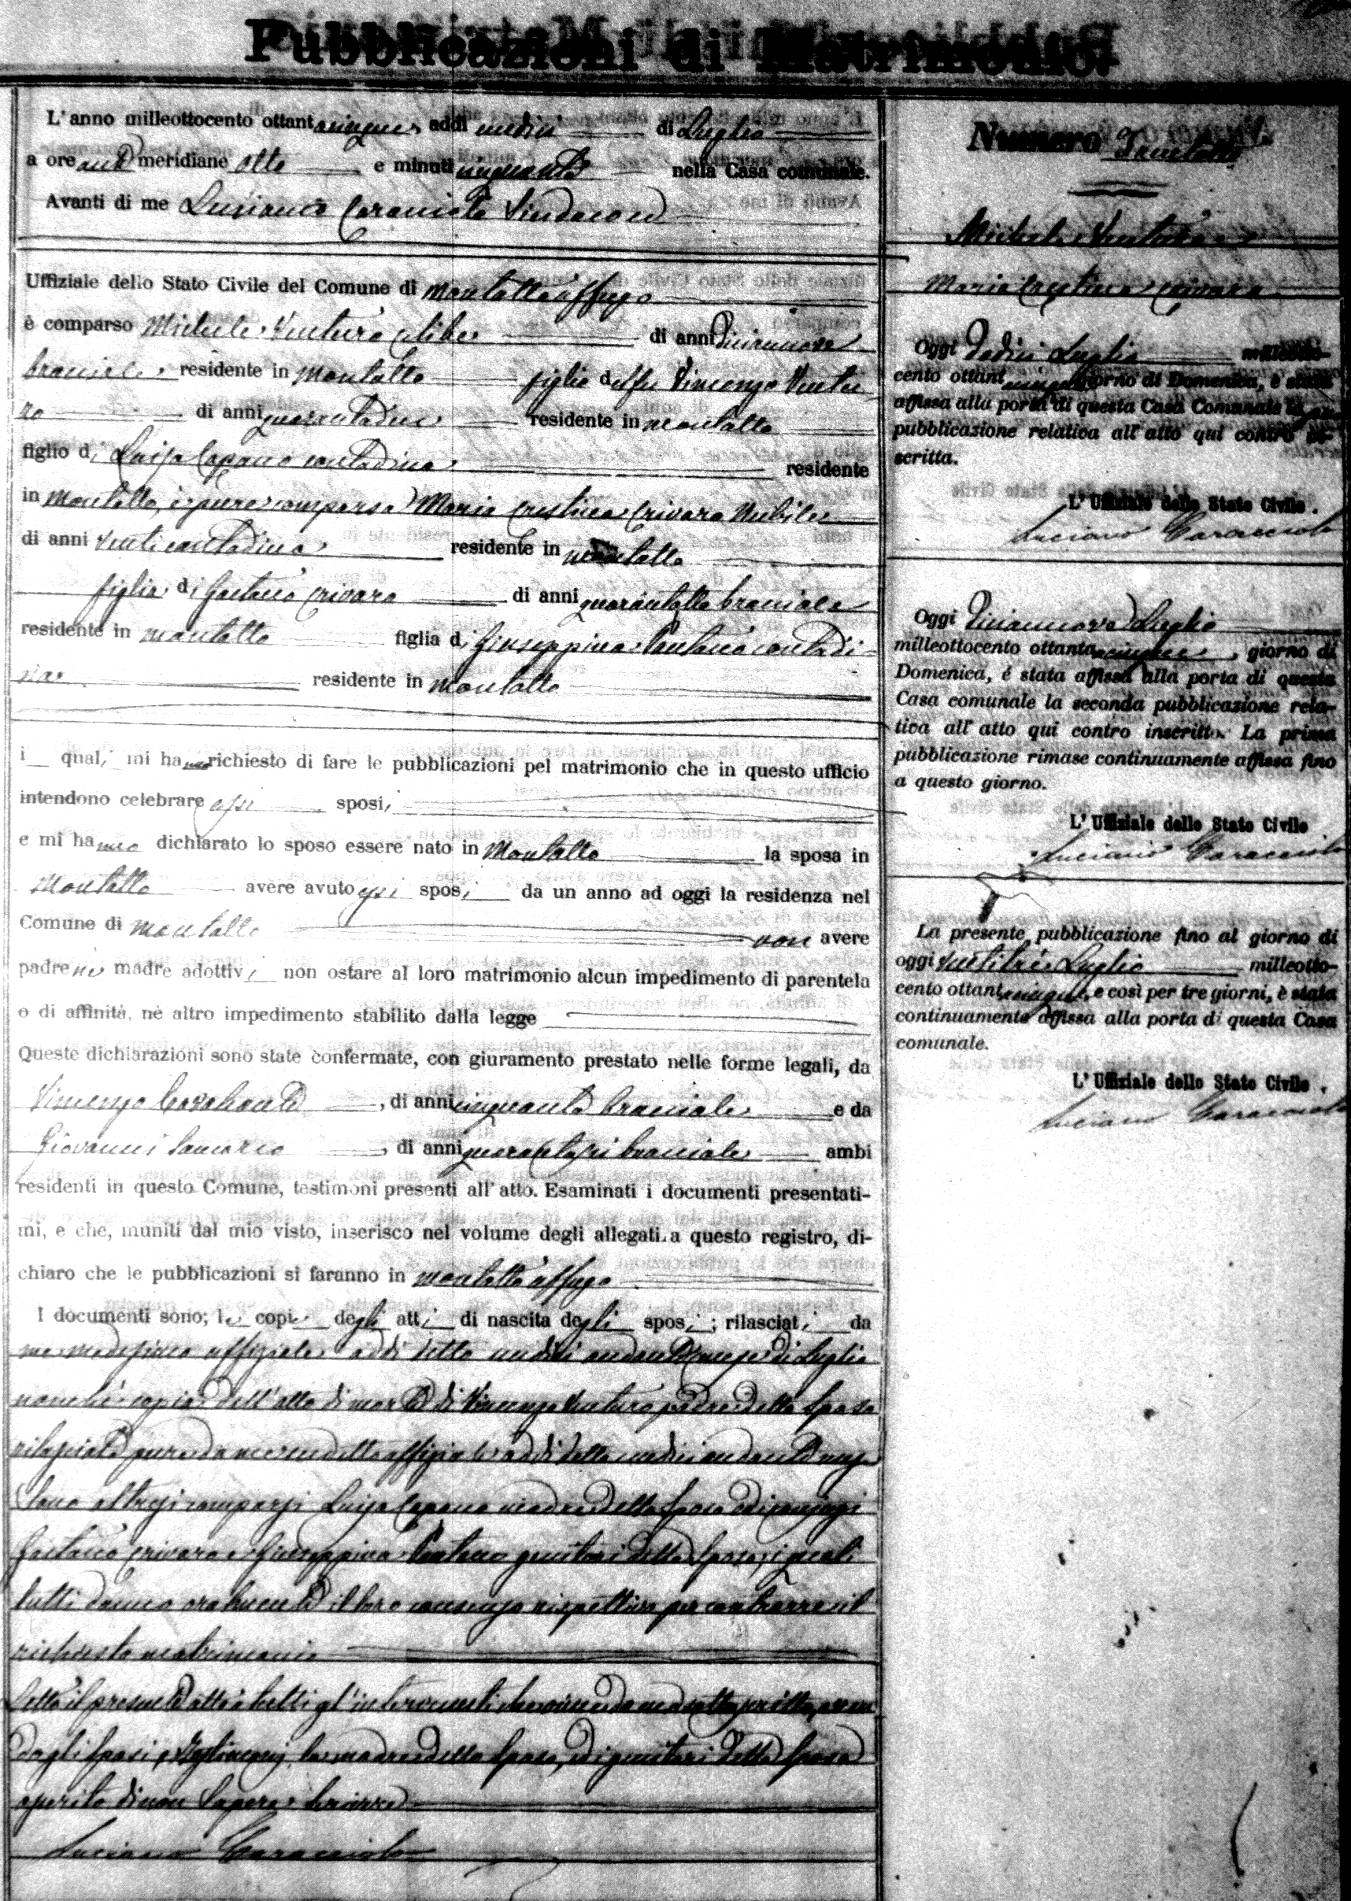 Pubblicazioni di Matrimonio.
L'anno milleottocento ottantacinque, addì undici di Luglio
a ore anti meridiane otto e minuti cinquanta nella Casa comunale.
Avanti di me Luciano Caracciolo Sindaco ed
Uffiziale dello Stato Civile del Comune di Montalto Uffugo
è comparso Michele Venturo celibe di anni diciannove
bracciale residente in Montalto figlio del fu Vincenzo Ventu
ro di anni residente in Montalto
figlio di Luisa Capano contadina residente
in Montalto, è pure comparsa Maria Cristina Crivaro Nubile
di anni venti contadina residente in Montalto
figlia di Gaetano Crivaro di anni quarantotto bracciale
residente in Montalto figlia di Giuseppina Pantano contadi
na residente in Montalto
i quali mi hanno richiesto di fare le pubblicazioni pel matrimonio che in questo ufficio
intendono celebrare essi sposi
e mi hanno dichiarato lo sposo essere nato in Montalto la sposa in
Montalto avere avuto essi sposi da un anno ad oggi la residenza nel
Comune di Montalto non avere
padre nè madre adottivi non ostare al loro matrimonio alcun impedimento di parentela
o di affinità, nè altro impedimento stabilito dalla legge
Queste dichiarazioni sono state confermate, con giuramento prestato nelle forme legali, da
Vincenzo , di anni cinquanta bracciale e da
Giovanni Samarco , di anni quarantasei bracciale ambi
residenti in questo Comune, testimoni presenti all'atto. Esaminati i documenti presentati-
mi, e che, muniti dal mio visto, inserisco nel volume degli allegati a questo registro, di-
chiaro che le pubblicazioni si faranno in Montalto Uffugo
I documenti sono; le copie degli atti di nascita degli sposi; rilasciati da
me medesimo uffiziale addì detto undici andante mese di Luglio
nonchè copia dell'atto di morte di Vincenzo Venturo padre dello sposo
rilasciata pure da me suddetto uffiziale addì detto undici andante mese
Sono altresì comparsi Luisa Capano madre dello sposo ed i coniugi
Gaetano Crivaro e Giuseppina Pantano genitori della sposa, i quali
tutti danno oralmente il loro consenso rispettivo per contrarre il
richiesto matrimonio
Letto il presente atto a tutti gl'intervenuti da me sottoscritto, avendo
dagli sposi, testimoni, la madre dello sposo, ed i genitori della sposa
asserito di non sapere scrivere
Luciano Caracciolo
Numero
Michele Venturo e
Maria Cristina Crivaro
Oggi dodici Luglio milleotto-
cento ottantacinque giorno di Domenica, è stata
affissa alla porta di questa Casa Comunale la
pubblicazione relativa all'atto qui contro in-
scritta.
L'Uffiziale dello Stato Civile.
Luciano Caracciolo
Oggi diciannove Luglio
milleottocento ottantacinque, giorno di
Domenica, é stata affissa alla porta di questa
Casa comunale la seconda pubblicazione rela-
tiva all'atto qui contro inscritto. La prima
pubblicazione rimase continuamente affissa fino
a questo giorno.
L'Uffiziale dello Stato Civile
Luciano Caracciolo
La presente pubblicazione fino al giorno di
oggi ventitrè Luglio milleotto-
cento ottantacinque, e così per tre giorni, è stata
continuamente affissa alla porta di questa Casa
comunale.
L'Uffiziale dello Stato Civile.
Luciano Caracciolo